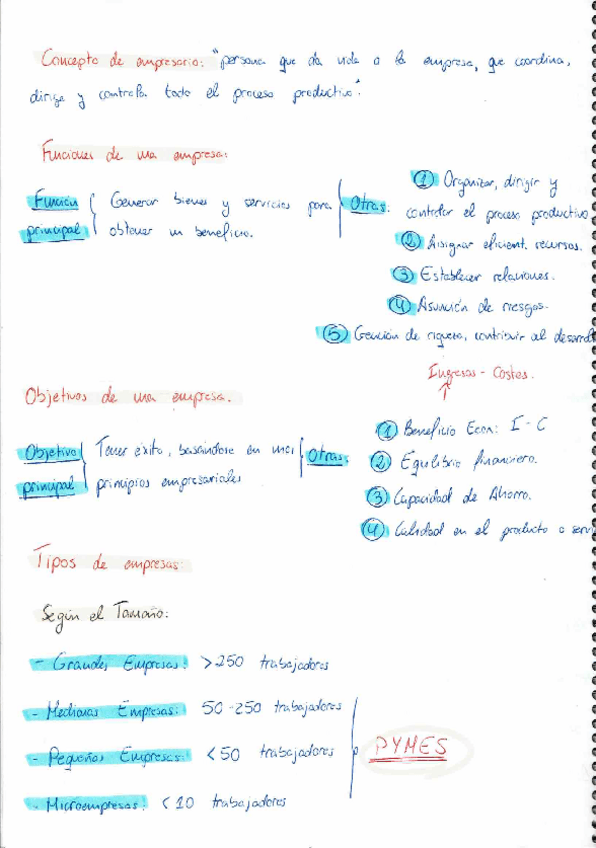 Concepto de empresario: "persona que da vida a la empresa, que coordina,
dirige y controla todo el proceso productivo".
Funciones de una empresa:
Función principal { Generar bienes y servicios para obtener un beneficio.
Otras:
① Organizar, dirigir y controlar el proceso productivo
② Asignar eficient. recursos.
③ Establecer relaciones.
④ Asunción de riesgos.
⑤ Gención de riqueza, contribuir al desarroll
Objetivos de una empresa.
Ingresos - Costes.
↑
Objetivo principal { Tener éxito, basándose en unos principios empresariales
Otras:
① Beneficio Econ: I - C
② Equilibrio financiero.
③ Capacidad de Ahorro.
④ Calidad en el producto o servi
Tipos de empresas:
Según el Tamaño:
- Grandes Empresas: >250 trabajadores
- Medianas Empresas: 50-250 trabajadores
- Pequeñas Empresas: <50 trabajadores
- Microempresas: <10 trabajadores
PYMES